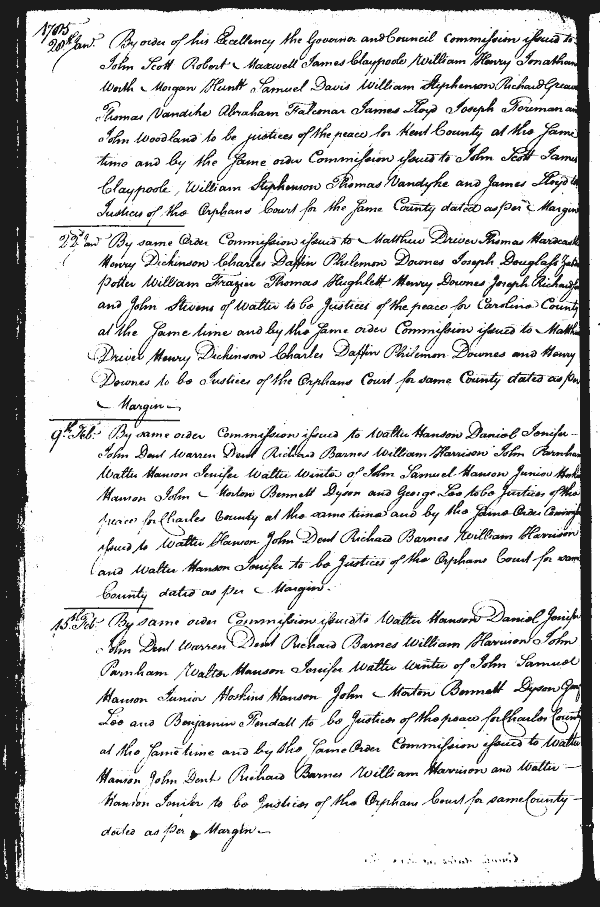 1785
20th Jan.y By order of his Excellency the Governor and Council Commission issued to
John Scott Robert Maxwell James Claypoole William Henry Jonathan
Worth Morgan Hurtt Samuel Davis William Stephenson Richard
Thomas Vandike Abraham Falconar James Lloyd Joseph Foreman and
John Woodland to be justices of the peace for Kent County at the same
time and by the same order Commission issued to John Scott James
Claypoole, William Stephenson Thomas Vandyke and James Lloyd to
Justices of the Orphans Court for the same County dated as per Margin
22d Jan By same Order Commission issued to Matthew Driver Thomas Hardcastle
Henry Dickinson Charles Daffin Philemon Downes Joseph Douglass
Potter William Frazier Thomas Hughlett Henry Downes Joseph Richards
and John Stevens of Walter to be Justices of the peace for Caroline County
at the same time and by the same order Commission issued to Matthew
Driver Henry Dickinson Charles Daffin Philemon Downes and Henry
Downes to be Justices of the Orphans Court for same County dated as per
Margin
9th Feb. By same order Commission issued to Walter Hanson Daniel Jenifer
John Dent Warren Dent Richard Barnes William Harrison John Parnham
Walter Hanson Jenifer Walter Winter of John Samuel Hanson Junior Hoskins
Hanson John Morton Bennett Dyson and George Lee to be Justices of the
peace for Charles County at the same time and by the same Order
issued to Walter Hanson John Dent Richard Barnes William Harrison
and Walter Hanson Jenifer to be Justices of the Orphans Court for same
County dated as per Margin.
15th Feb. By same order Commission issued to Walter Hanson Daniel Jenifer
John Dent Warren Dent Richard Barnes William Harrison John
Parnham Walter Hanson Jenifer Walter Winter of John Samuel
Hanson Junior Hoskins Hanson John Morton Bennett Dyson
Lee and Benjamin Fendall to be Justices of the peace for Charles County
at the same time and by the same Order Commission issued to Walter
Hanson John Dent Richard Barnes William Harrison and Walter
Hanson Jenifer to be Justices of the Orphans Court for same County
dated as per Margin